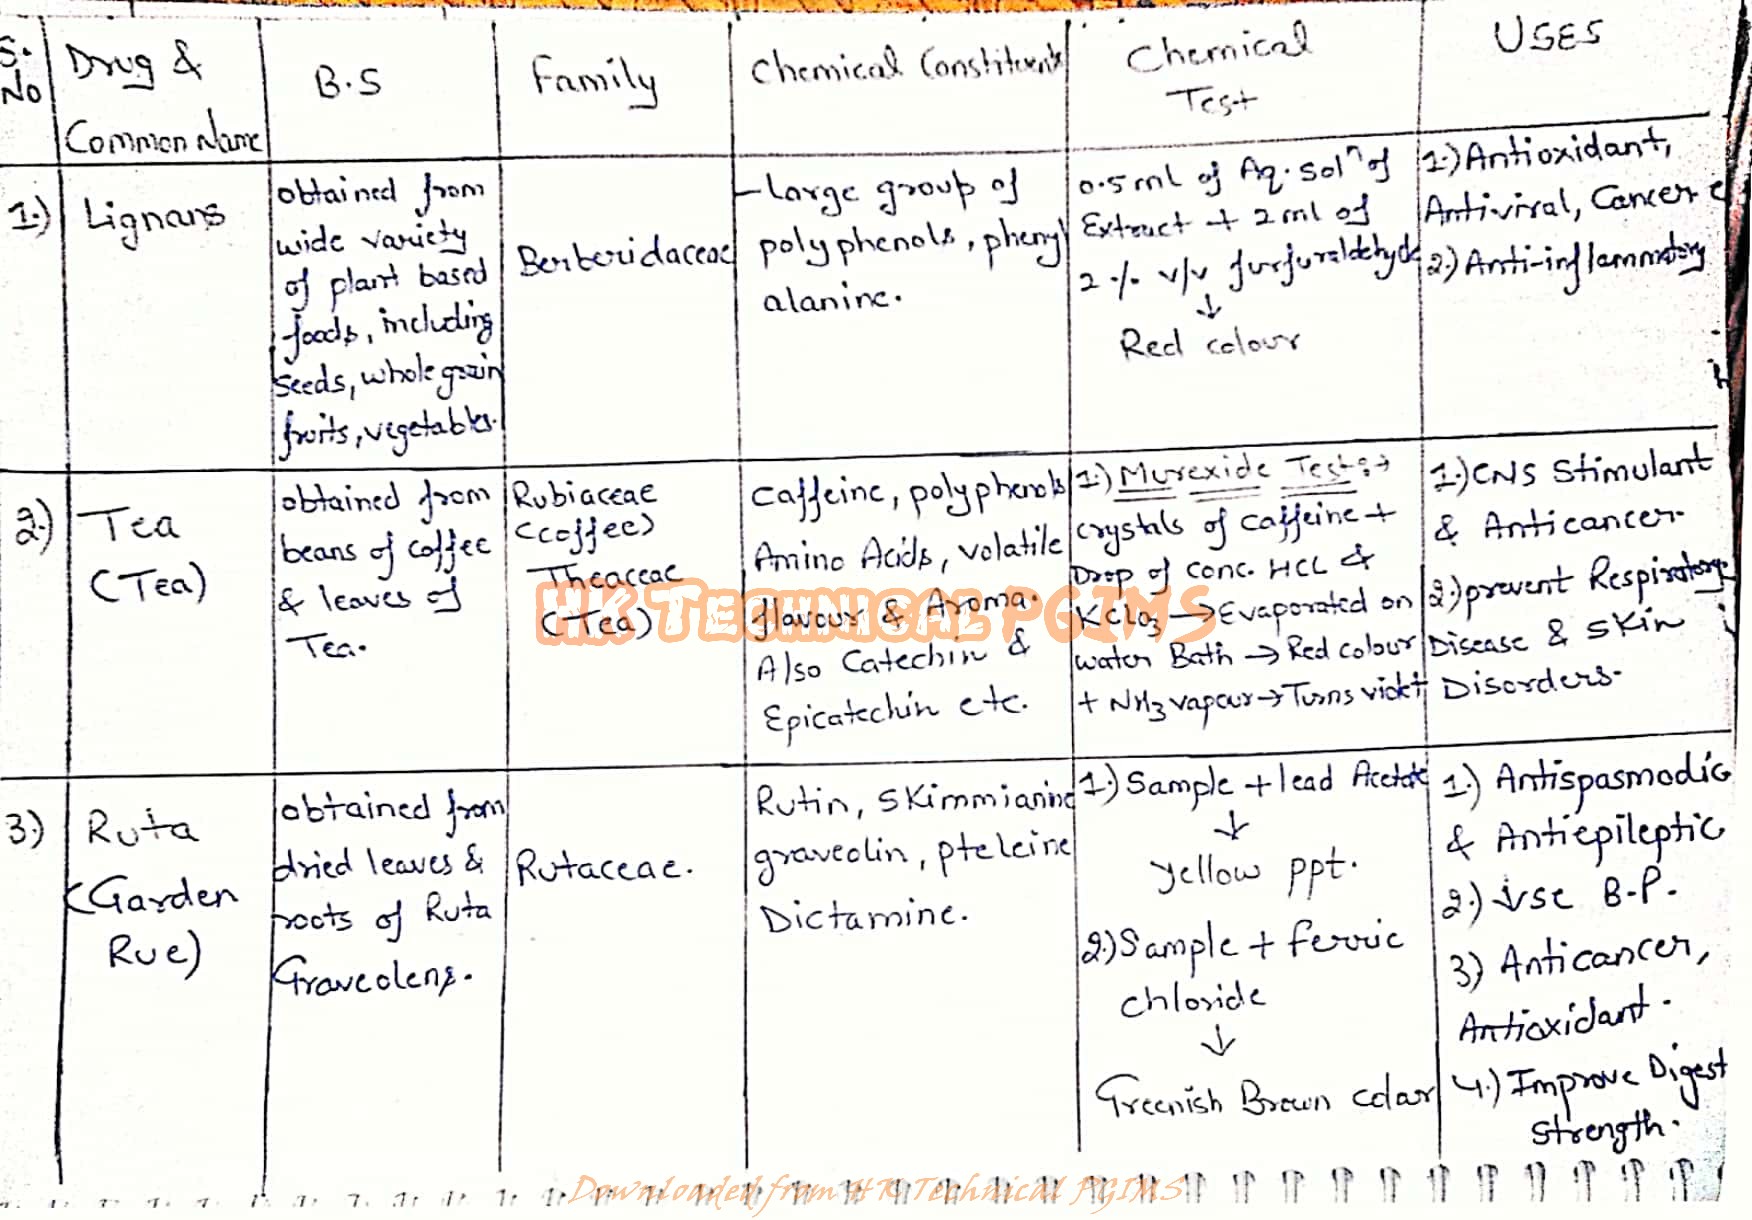 S. No
Drug & Common Name
B.S
Family
Chemical Constituents
Chemical Test
USES
1.)
Lignans
obtained from
wide variety
of plant based
foods, including
seeds, whole grain
fruits, vegetables.
Berberidaceae
- large group of
polyphenols, phenyl
alanine.
0.5 ml of Aq. solⁿ of
Extract + 2 ml of
2 % v/v furfuraldehyde
↓
Red colour
1.) Antioxidant,
Antiviral, Cancer
2.) Anti-inflammatory
2.)
Tea
(Tea)
obtained from
beans of coffee
& leaves of
Tea.
Rubiaceae
(coffee)
Theaceae
(Tea)
Caffeine, polyphenols
Amino Acids, volatile
flavour & Aroma.
Also Catechin &
Epicatechin etc.
1.) Murexide Test:→
crystals of caffeine +
Drop of conc. HCL &
KClO3 → Evaporated on
water Bath → Red colour
+ NH3 vapour → Turns violet
1.) CNS Stimulant
& Anticancer.
2.) prevent Respiratory
Disease & skin
Disorders.
HK Technical PGIMS
3.)
Ruta
(Garden
Rue)
obtained from
dried leaves &
roots of Ruta
Graveolens.
Rutaceae.
Rutin, Skimmianine
graveolin, pteleine
Dictamine.
1.) Sample + lead Acetate
↓
yellow ppt.
2.) Sample + ferric
chloride
↓
Greenish Brown colour
1.) Antispasmodic
& Antiepileptic
2.) ↓se B.P.
3) Anticancer,
Antioxidant.
4.) Improve Digest
strength.
Downloaded from HK Technical PGIMS